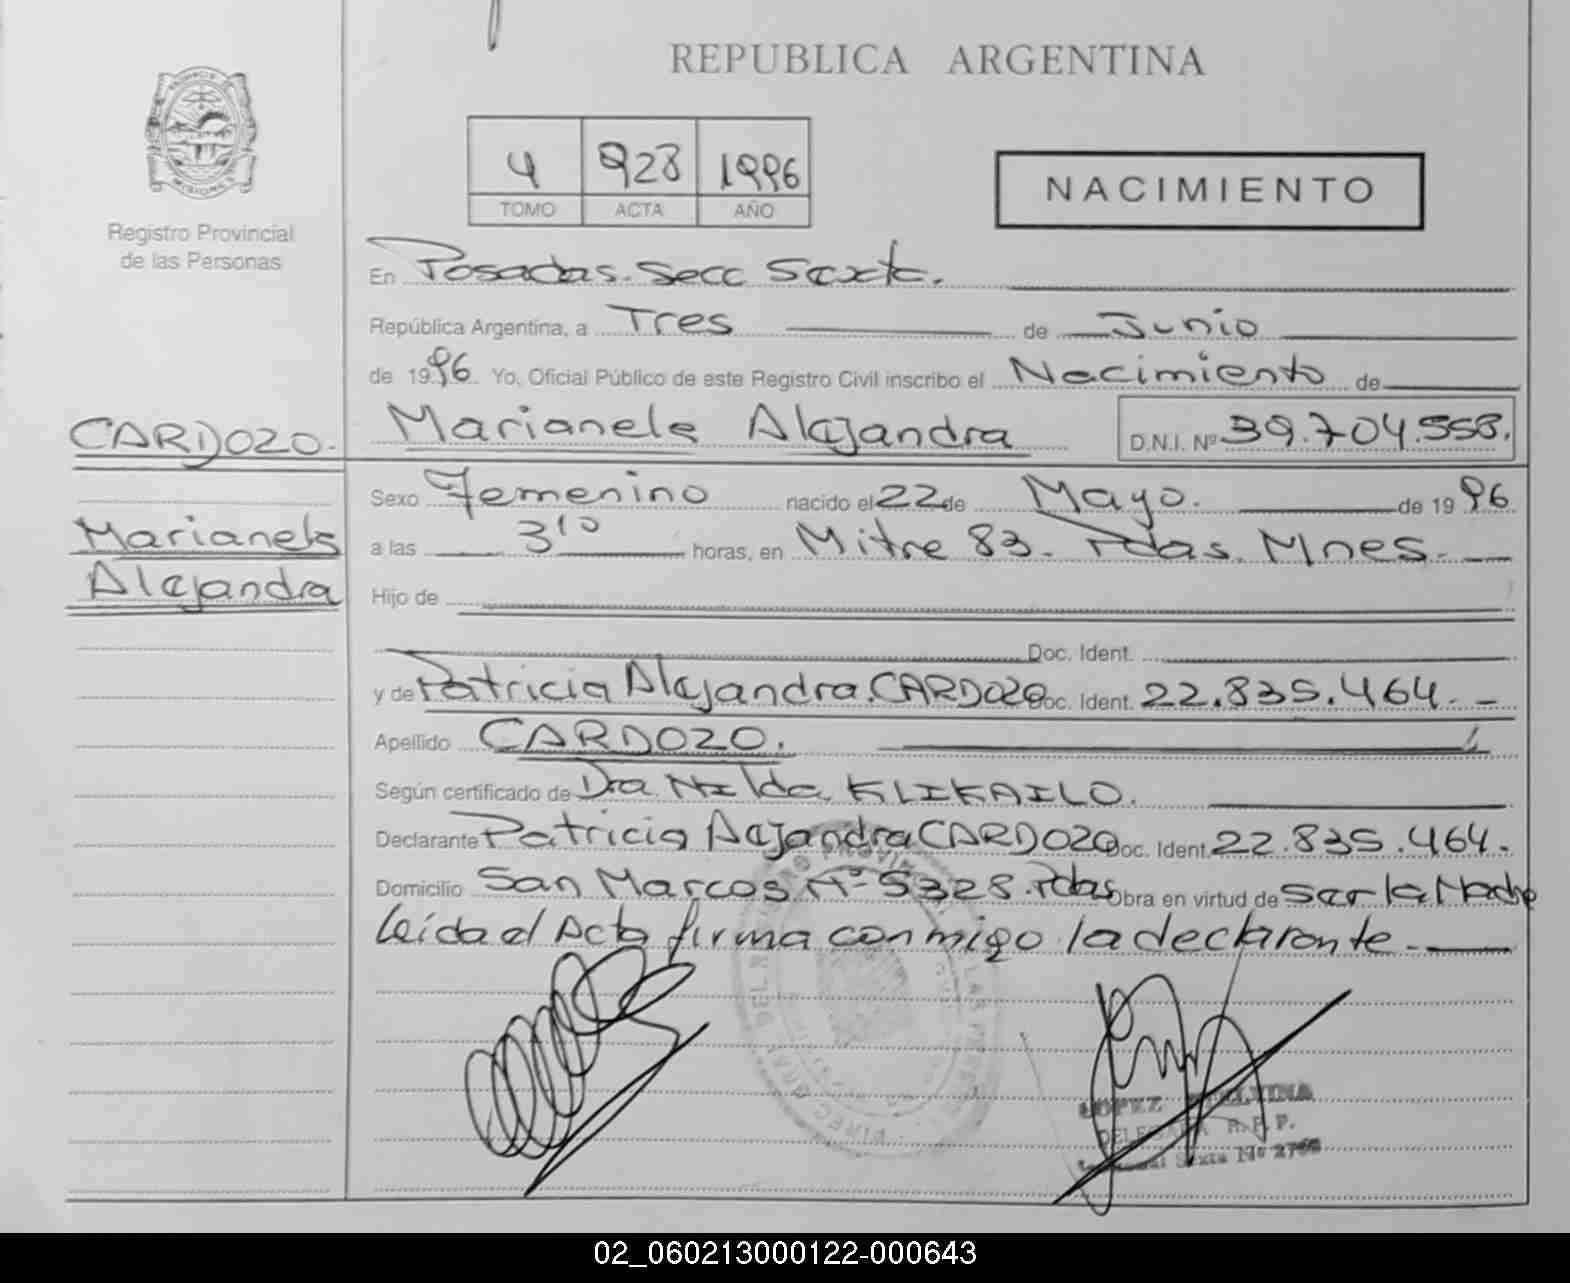 REPUBLICA ARGENTINA
PROVINCIA DE
MISIONES
Registro Provincial
de las Personas
4 928 1996
TOMO ACTA AÑO
NACIMIENTO
En Posadas. Secc Sexta.
República Argentina, a Tres de Junio
de 1996 Yo, Oficial Público de este Registro Civil inscribo el Nacimiento de
CARDOZO. Marianela Alejandra D.N.I. Nº 39.704.558.
Sexo Femenino nacido el 22 de Mayo. de 1996.
Marianela
a las 3¹⁰ horas, en Mitre 83. Pdas. Mnes.
Alejandra
Hijo de
Doc. Ident.
y de Patricia Alejandra. CARDOZO Doc. Ident. 22.835.464.
Apellido CARDOZO.
Según certificado de Dra. Nilda KLIKAILO.
Declarante Patricia Alejandra CARDOZO Doc. Ident. 22.835.464.
Domicilio San Marcos Nº 5328. Pdas Obra en virtud de ser la Madre
Leída el Acta firma conmigo la declarante.
LOPEZ
DELEGADA R.P.P.
Sexta Nº
02_060213000122-000643